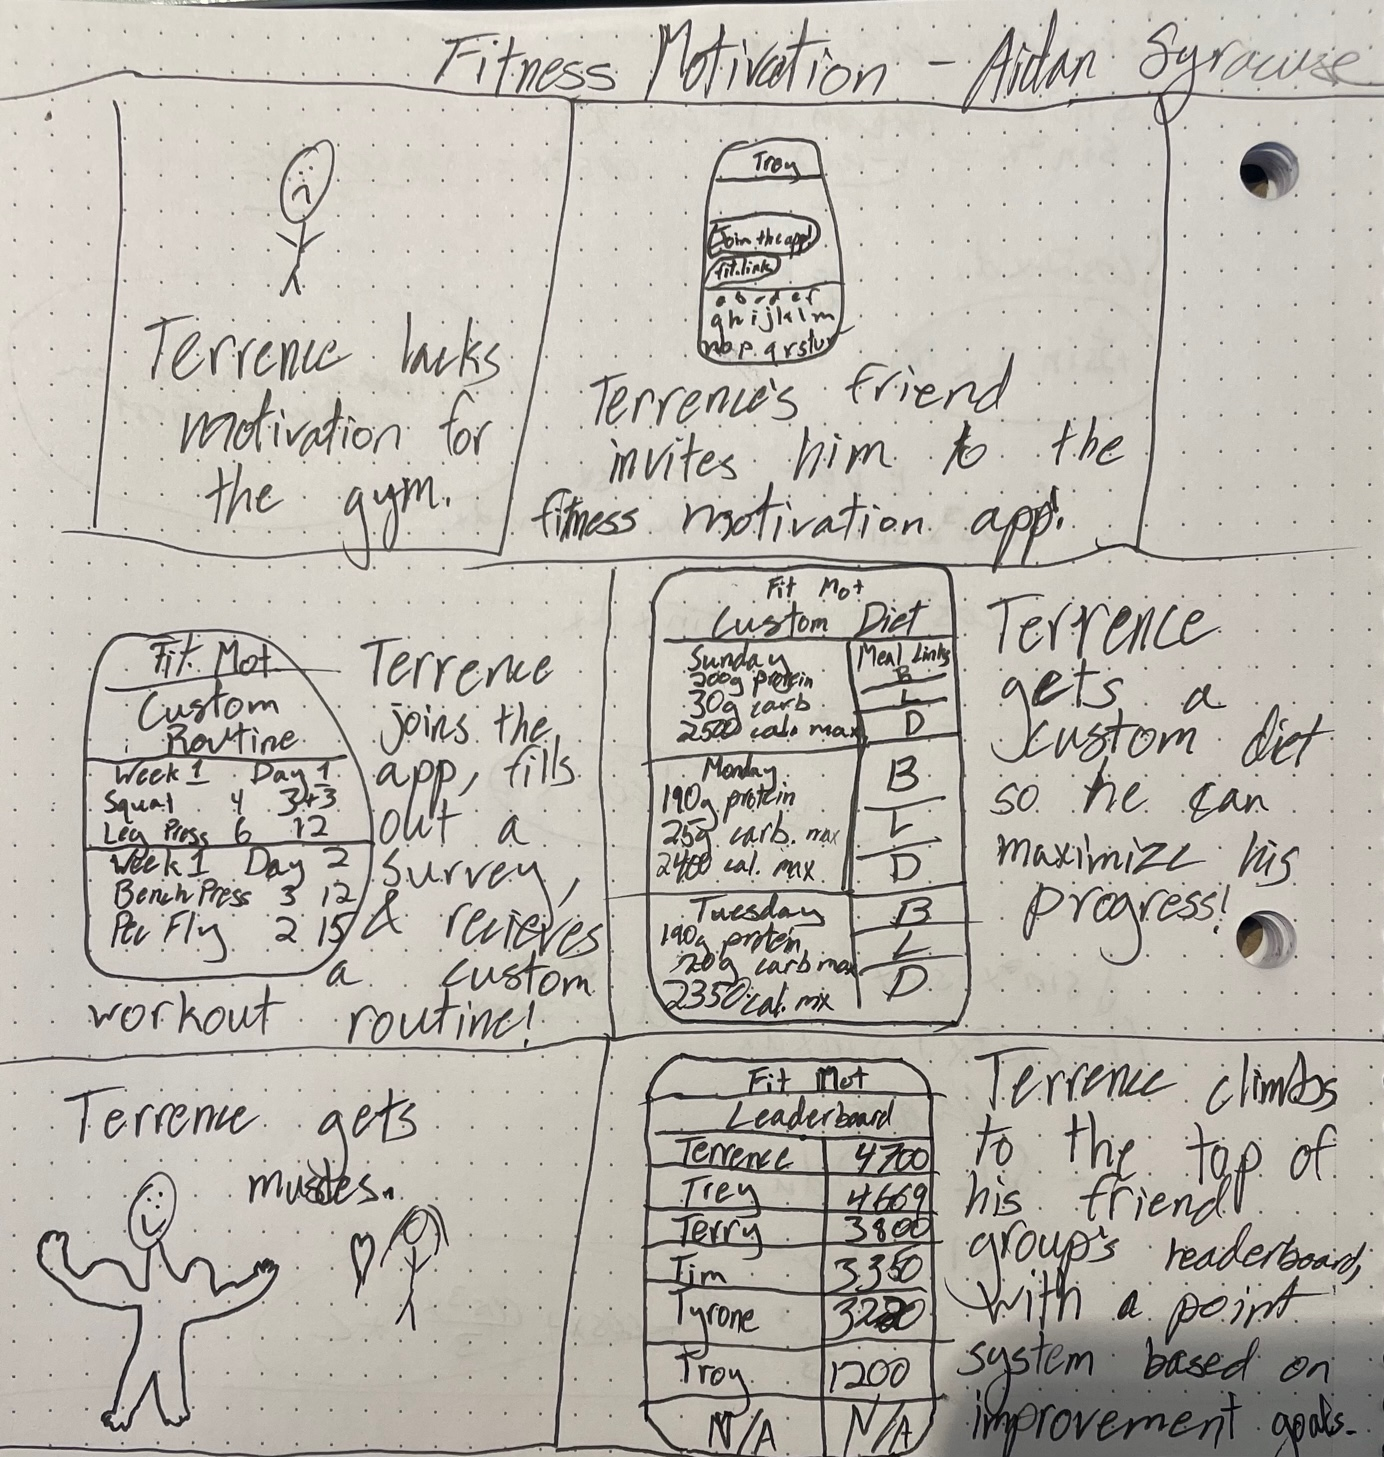 Fitness Motivation - Aidan Syracuse
Terrence lacks
motivation for
the gym.
Troy
Join the app!
fit.link
a b c d e f
g h i j k l m
n o p q r s t u v
Terrence's friend
invites him to the
fitness motivation app!
Fit Mot
Custom
Routine
Week 1 Day 1
Squat 4 3+3
Leg Press 6 12
Week 1 Day 2
Bench Press 3 12
Pec Fly 2 15
Terrence
joins the
app, fills
out a
survey,
& recieves
a custom
workout routine!
Fit Mot
Custom Diet
Sunday
200g protein
30g carb
2500 cal. max
Meal Links
B
L
D
Monday
190g protein
25g carb. max
2400 cal. max
B
L
D
Tuesday
190g protein
20g carb max
2350 cal. mx
B
L
D
Terrence
gets a
custom diet
so he can
maximize his
progress!
Terrence gets
muscles.
Fit Mot
Leaderboard
Terrence 4700
Trey 4669
Terry 3800
Tim 3350
Tyrone
Troy 1200
N/A N/A
Terrence climbs
to the top of
his friend
group's leaderboard,
with a point
system based on
improvement goals.